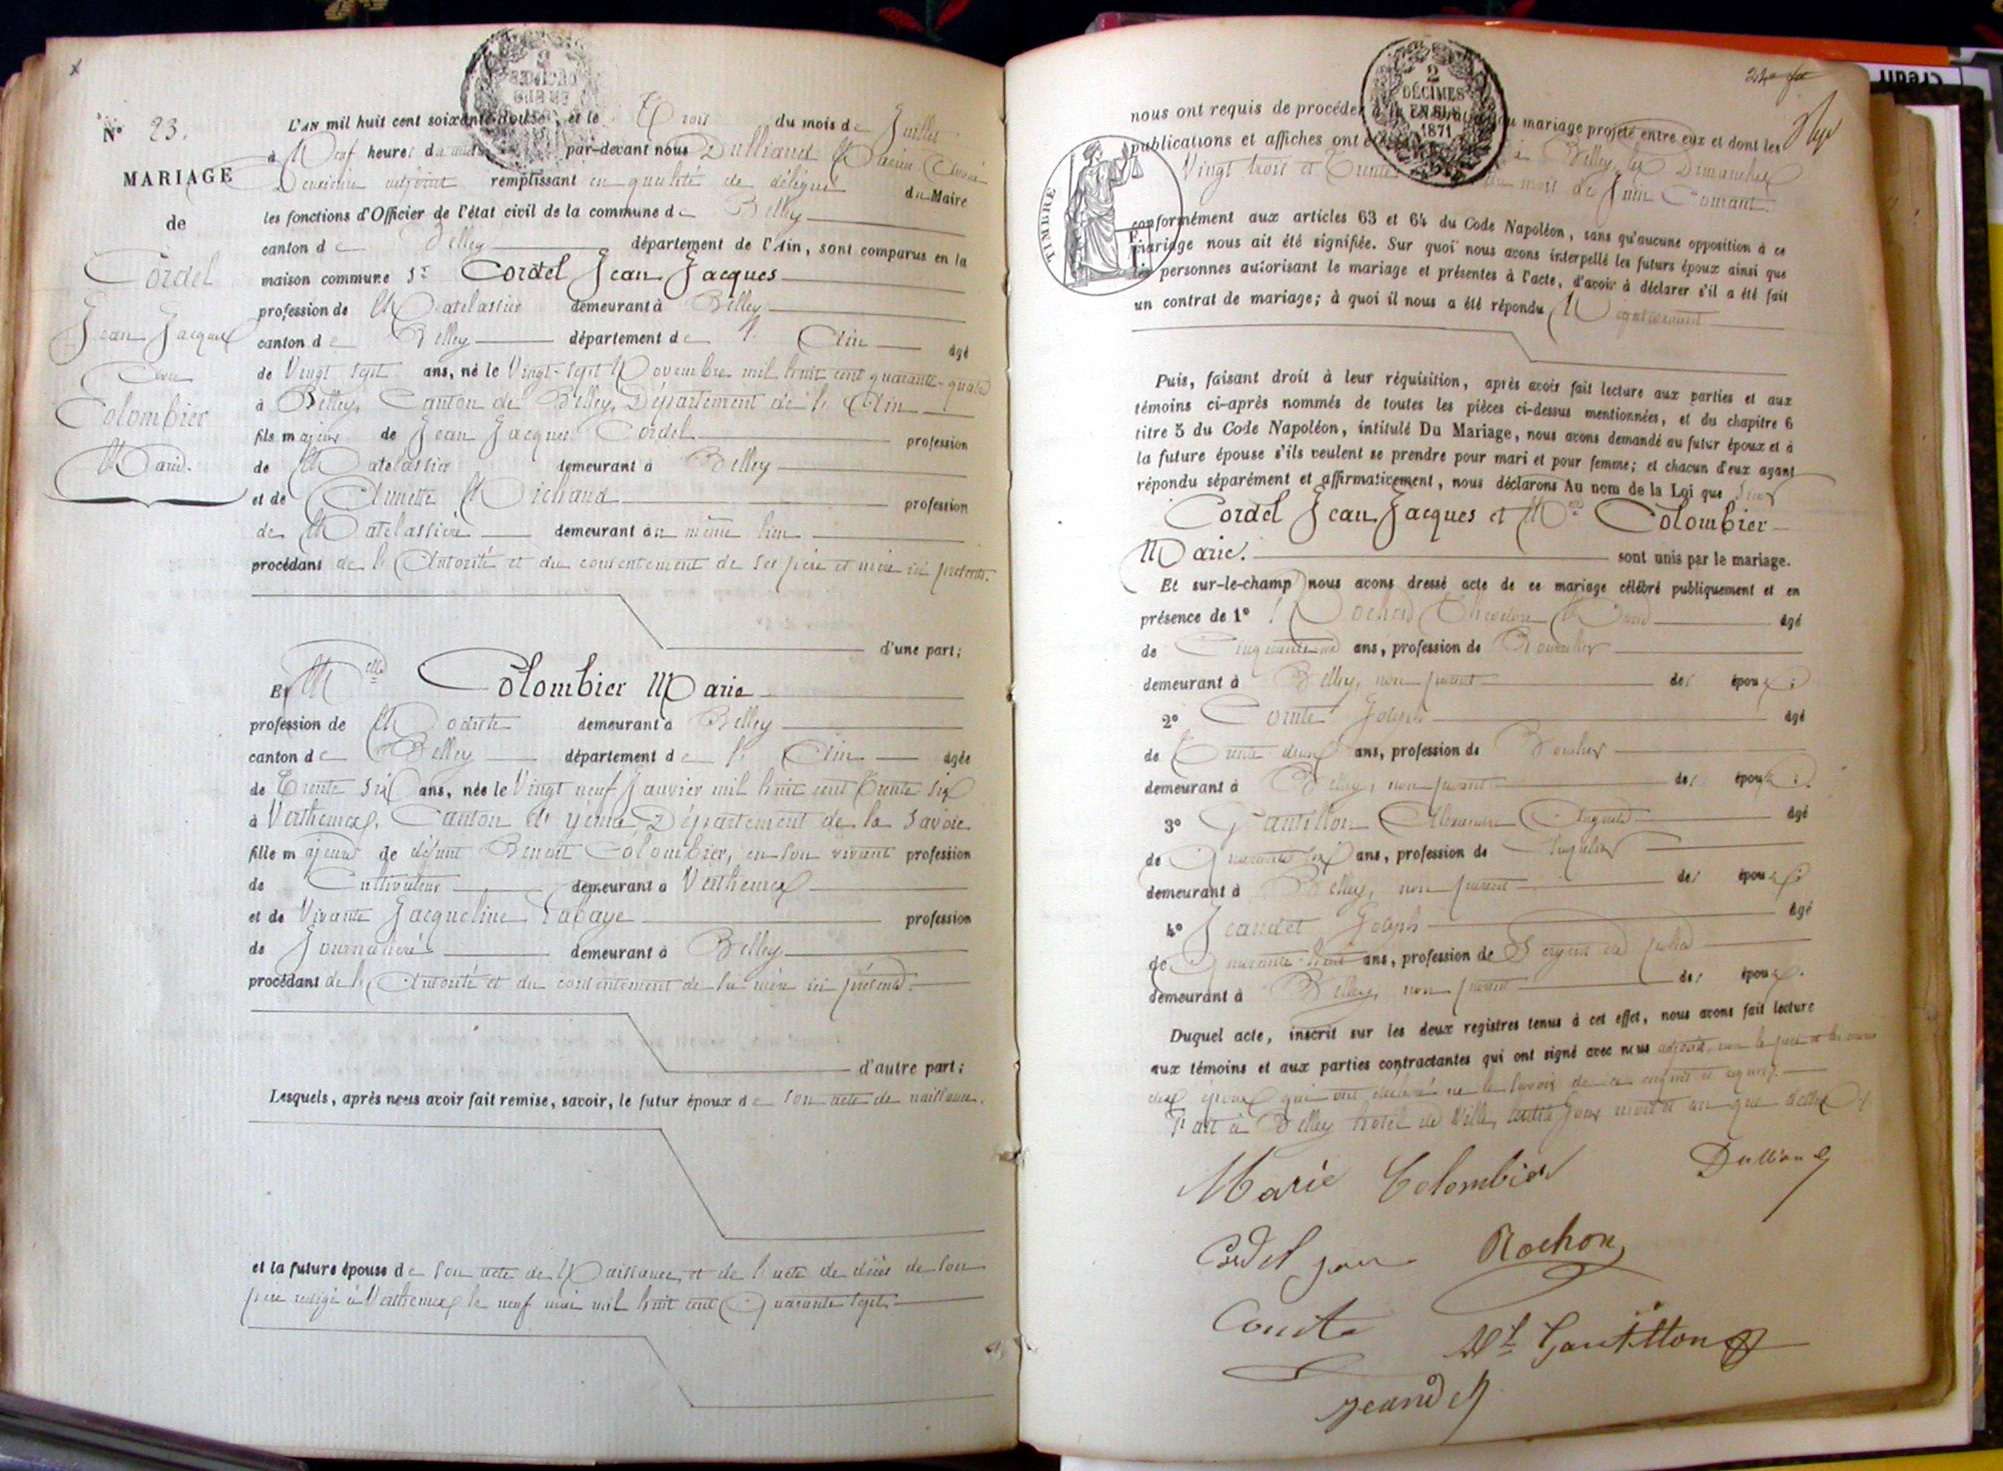 N° 23.
MARIAGE
de
Cordel
Jean Jacques
Avec
Colombier
Marie.
L'AN mil huit cent soixante-douze, et le Trois du mois de Juillet
à Neuf heures du par-devant nous Dulliand
Deuxième adjoint remplissant en qualité de délégué du Maire
les fonctions d'Officier de l'état civil de la commune de Belley
canton de Belley département de l'Ain, sont comparus en la
maison commune Sr Cordel Jean Jacques
profession de Matelassier demeurant à Belley
canton de Belley département de l'Ain âgé
de Vingt Sept ans, né le Vingt-Sept Novembre mil huit cent quarante-quatre
à Belley, Canton de Belley, Département de l'Ain
fils majeur de Jean Jacques Cordel profession
de Matelassier demeurant à Belley
et de Annette Michaud profession
de Matelassière demeurant au même lieu
procédant de l'Autorité et du consentement de ses père et mère ici présents.
d'une part;
Et Melle Colombier Marie
profession de Modiste demeurant à Belley
canton de Belley département de l'Ain âgée
de Trente Six ans, née le Vingt neuf Janvier mil huit cent Trente Six
à Verthemex, Canton de Yenne Département de la Savoie
fille majeure de défunt Benoit Colombier, en son vivant profession
de Cultivateur demeurant à Verthemex
et de Vivante Jacqueline Labaye profession
de Journalière demeurant à Belley
procédant de l'Autorité et du consentement de sa mère ici présente.
d'autre part;
Lesquels, après nous avoir fait remise, savoir, le futur époux de son acte de naissance.
et la future épouse de son acte de Naissance, et de l'acte de décès de son
père rédigé à Verthemex le neuf mai mil huit cent Quarante Sept.
2 DÉCIMES EN SUS 1871
TIMBRE
nous ont requis de procéder à la du mariage projeté entre eux et dont les
publications et affiches ont été à Belley, les Dimanches
Vingt trois et Trente du mois de Juin Courant.
conformément aux articles 63 et 64 du Code Napoléon, sans qu'aucune opposition à ce
mariage nous ait été signifiée. Sur quoi nous avons interpellé les futurs époux ainsi que
les personnes autorisant le mariage et présentes à l'acte, d'avoir à déclarer s'il a été fait
un contrat de mariage; à quoi il nous a été répondu Négativement
Puis, faisant droit à leur réquisition, après avoir fait lecture aux parties et aux
témoins ci-après nommés de toutes les pièces ci-dessus mentionnées, et du chapitre 6
titre 5 du Code Napoléon, intitulé Du Mariage, nous avons demandé au futur époux et à
la future épouse s'ils veulent se prendre pour mari et pour femme; et chacun d'eux ayant
répondu séparément et affirmativement, nous déclarons Au nom de la Loi que Sieur
Cordel Jean Jacques et Melle Colombier
Marie. sont unis par le mariage.
Et sur-le-champ nous avons dressé acte de ce mariage célébré publiquement et en
présence de 1° Rochon âgé
de ans, profession de
demeurant à Belley, non parent des époux;
2° Comte Joseph âgé
de Trente deux ans, profession de
demeurant à Belley, non parent des époux;
3° Gantillon Alexandre Auguste âgé
de Quarante Six ans, profession de
demeurant à Belley, non parent des époux;
4° Jeandet Joseph âgé
de Quarante-huit ans, profession de Sergent de police
demeurant à Belley, non parent des époux.
Duquel acte, inscrit sur les deux registres tenus à cet effet, nous avons fait lecture
aux témoins et aux parties contractantes qui ont signé avec nous adjoint, non le père et les mères
des époux qui ont déclaré ne le savoir de ce enquis et requis.
Fait à Belley hôtel de Ville, les dits jour mois et an que dessus
Marie Colombier
Dulliand
Cordel Jean
Rochon
Comte
Gantillon
Jeandet